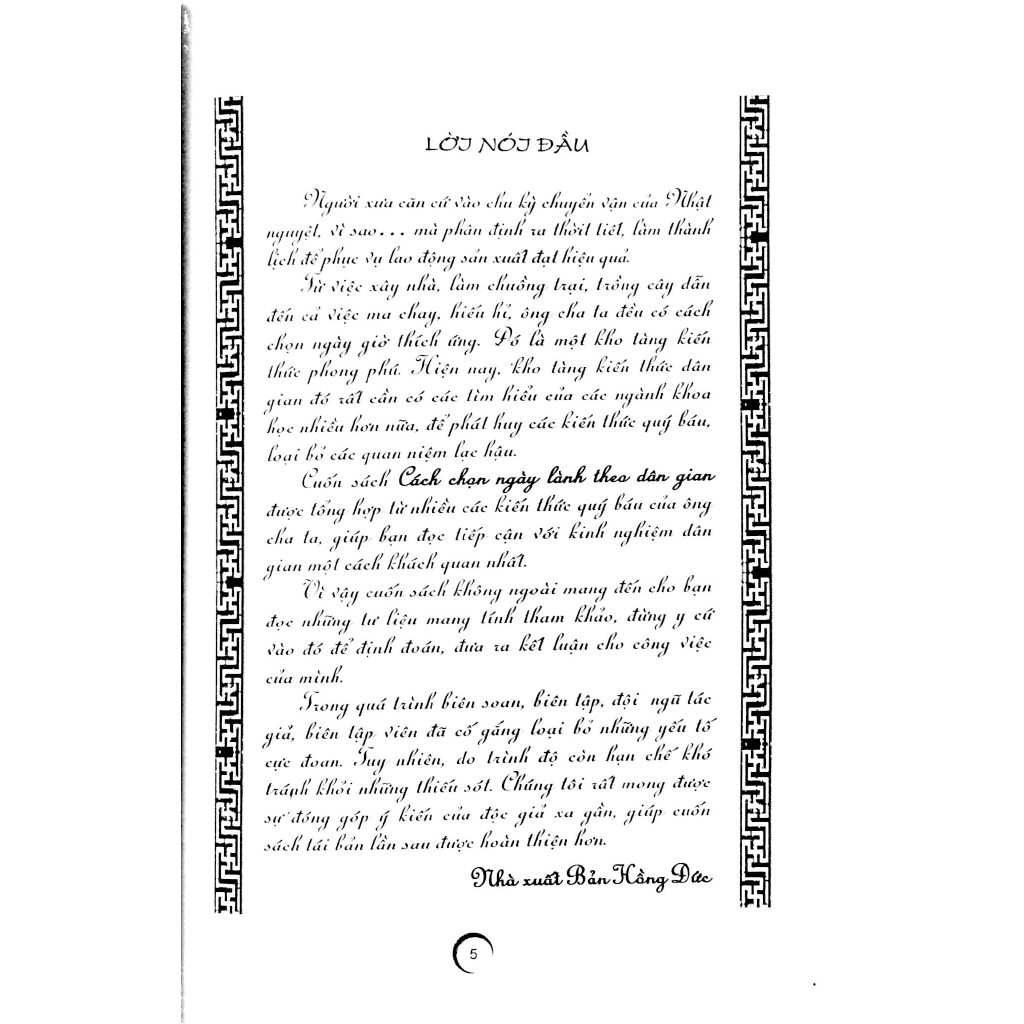 LỜI NÓI ĐẦU
Người xưa căn cứ vào chu kỳ chuyển vận của Nhật
nguyệt, vì sao... mà phân định ra thời tiết, làm thành
lịch để phục vụ lao động sản xuất đạt hiệu quả.
Từ việc xây nhà, làm chuồng trại, trồng cây dẫn
đến cả việc ma chay, hiếu hỉ, ông cha ta đều có cách
chọn ngày giờ thích ứng. Đó là một kho tàng kiến
thức phong phú. Hiện nay, kho tàng kiến thức dân
gian đó rất cần có các tìm hiểu của các ngành khoa
học nhiều hơn nữa, để phát huy các kiến thức quý báu,
loại bỏ các quan niệm lạc hậu.
Cuốn sách Cách chọn ngày lành theo dân gian
được tổng hợp từ nhiều các kiến thức quý báu của ông
cha ta, giúp bạn đọc tiếp cận với kinh nghiệm dân
gian một cách khách quan nhất.
Vì vậy cuốn sách không ngoài mang đến cho bạn
đọc những tư liệu mang tính tham khảo, đừng y cứ
vào đó để định đoán, đưa ra kết luận cho công việc
của mình.
Trong quá trình biên soạn, biên tập, đội ngũ tác
giả, biên tập viên đã cố gắng loại bỏ những yếu tố
cực đoan. Tuy nhiên, do trình độ còn hạn chế khó
tránh khỏi những thiếu sót. Chúng tôi rất mong được
sự đóng góp ý kiến của độc giả xa gần, giúp cuốn
sách tái bản lần sau được hoàn thiện hơn.
Nhà xuất Bản Hồng Đức
5